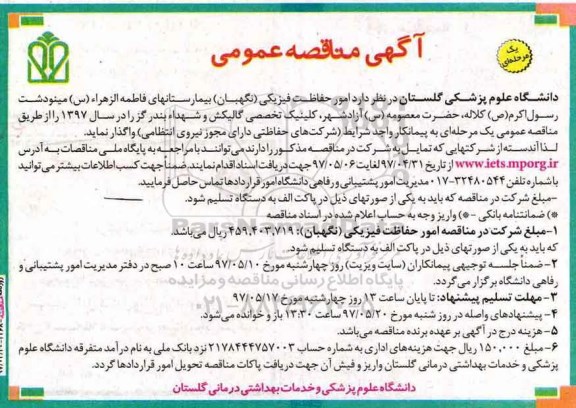 آگهی مناقصه عمومی
یک
مرحله‌ای
دانشگاه علوم پزشکی گلستان در نظر دارد امور حفاظت فیزیکی (نگهبان) بیمارستانهای فاطمه الزهراء (س) مینودشت
رسول اکرم(ص) کلاله، حضرت معصومه (س) آزادشهر، کلینیک تخصصی گالیکش و شهداء بندر گز را در سال ۱۳۹۷ را از طریق
مناقصه عمومی یک مرحله‌ای به پیمانکار واجد شرایط (شرکت‌های حفاظتی دارای مجوز نیروی انتظامی) واگذار نماید.
لذا آندسته از شرکتهایی که تمایل به شرکت در مناقصه مذکور را دارند می‌توانند با مراجعه به پایگاه ملی مناقصات به آدرس
www.iets.mporg.ir از تاریخ ۹۷/۰۴/۳۱ لغایت ۹۷/۰۵/۰۶ جهت دریافت اسناد اقدام نمایند. ضمناً جهت کسب اطلاعات بیشتر می‌توانید
با شماره تلفن ۳۲۴۸۰۵۴۴-۰۱۷ مدیریت امور پشتیبانی و رفاهی دانشگاه امور قراردادها تماس حاصل فرمایید.
-مبلغ شرکت در مناقصه که باید به یکی از صورتهای ذیل در پاکت الف به دستگاه تسلیم شود.
*) ضمانتنامه بانکی - *) واریز وجه به حساب اعلام شده در اسناد مناقصه
۱-مبلغ شرکت در مناقصه امور حفاظت فیزیکی (نگهبان): ۴۵۹,۴۰۳,۷۱۹ ریال می‌باشد.
که باید به یکی از صورتهای ذیل در پاکت الف به دستگاه تسلیم شود.
۲-ضمناً جلسه توجیهی پیمانکاران (سایت ویزیت) روز چهارشنبه مورخ ۹۷/۰۵/۱۰ ساعت ۱۰ صبح در دفتر مدیریت امور پشتیبانی و
رفاهی دانشگاه برگزار می‌گردد.
۳- مهلت تسلیم پیشنهاد: تا پایان ساعت ۱۳ روز چهارشنبه مورخ ۹۷/۰۵/۱۷
۴- پیشنهادهای واصله در روز شنبه مورخ ۹۷/۰۵/۲۰ ساعت ۱۳:۳۰ باز و خوانده می‌شود.
۵- هزینه درج در آگهی بر عهده برنده مناقصه می‌باشد.
۶- مبلغ ۱۵۰,۰۰۰ ریال جهت هزینه‌های اداری به شماره حساب ۲۱۷۸۴۴۴۷۵۷۰۰۳ نزد بانک ملی به نام درآمد متفرقه دانشگاه علوم
پزشکی و خدمات بهداشتی درمانی گلستان واریز و فیش آن جهت دریافت پاکات مناقصه تحویل امور قراردادها گردد.
دانشگاه علوم پزشکی و خدمات بهداشتی درمانی گلستان